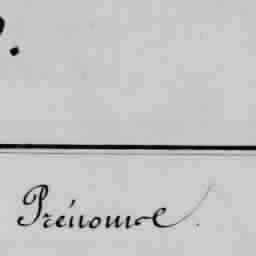 Prénoms.